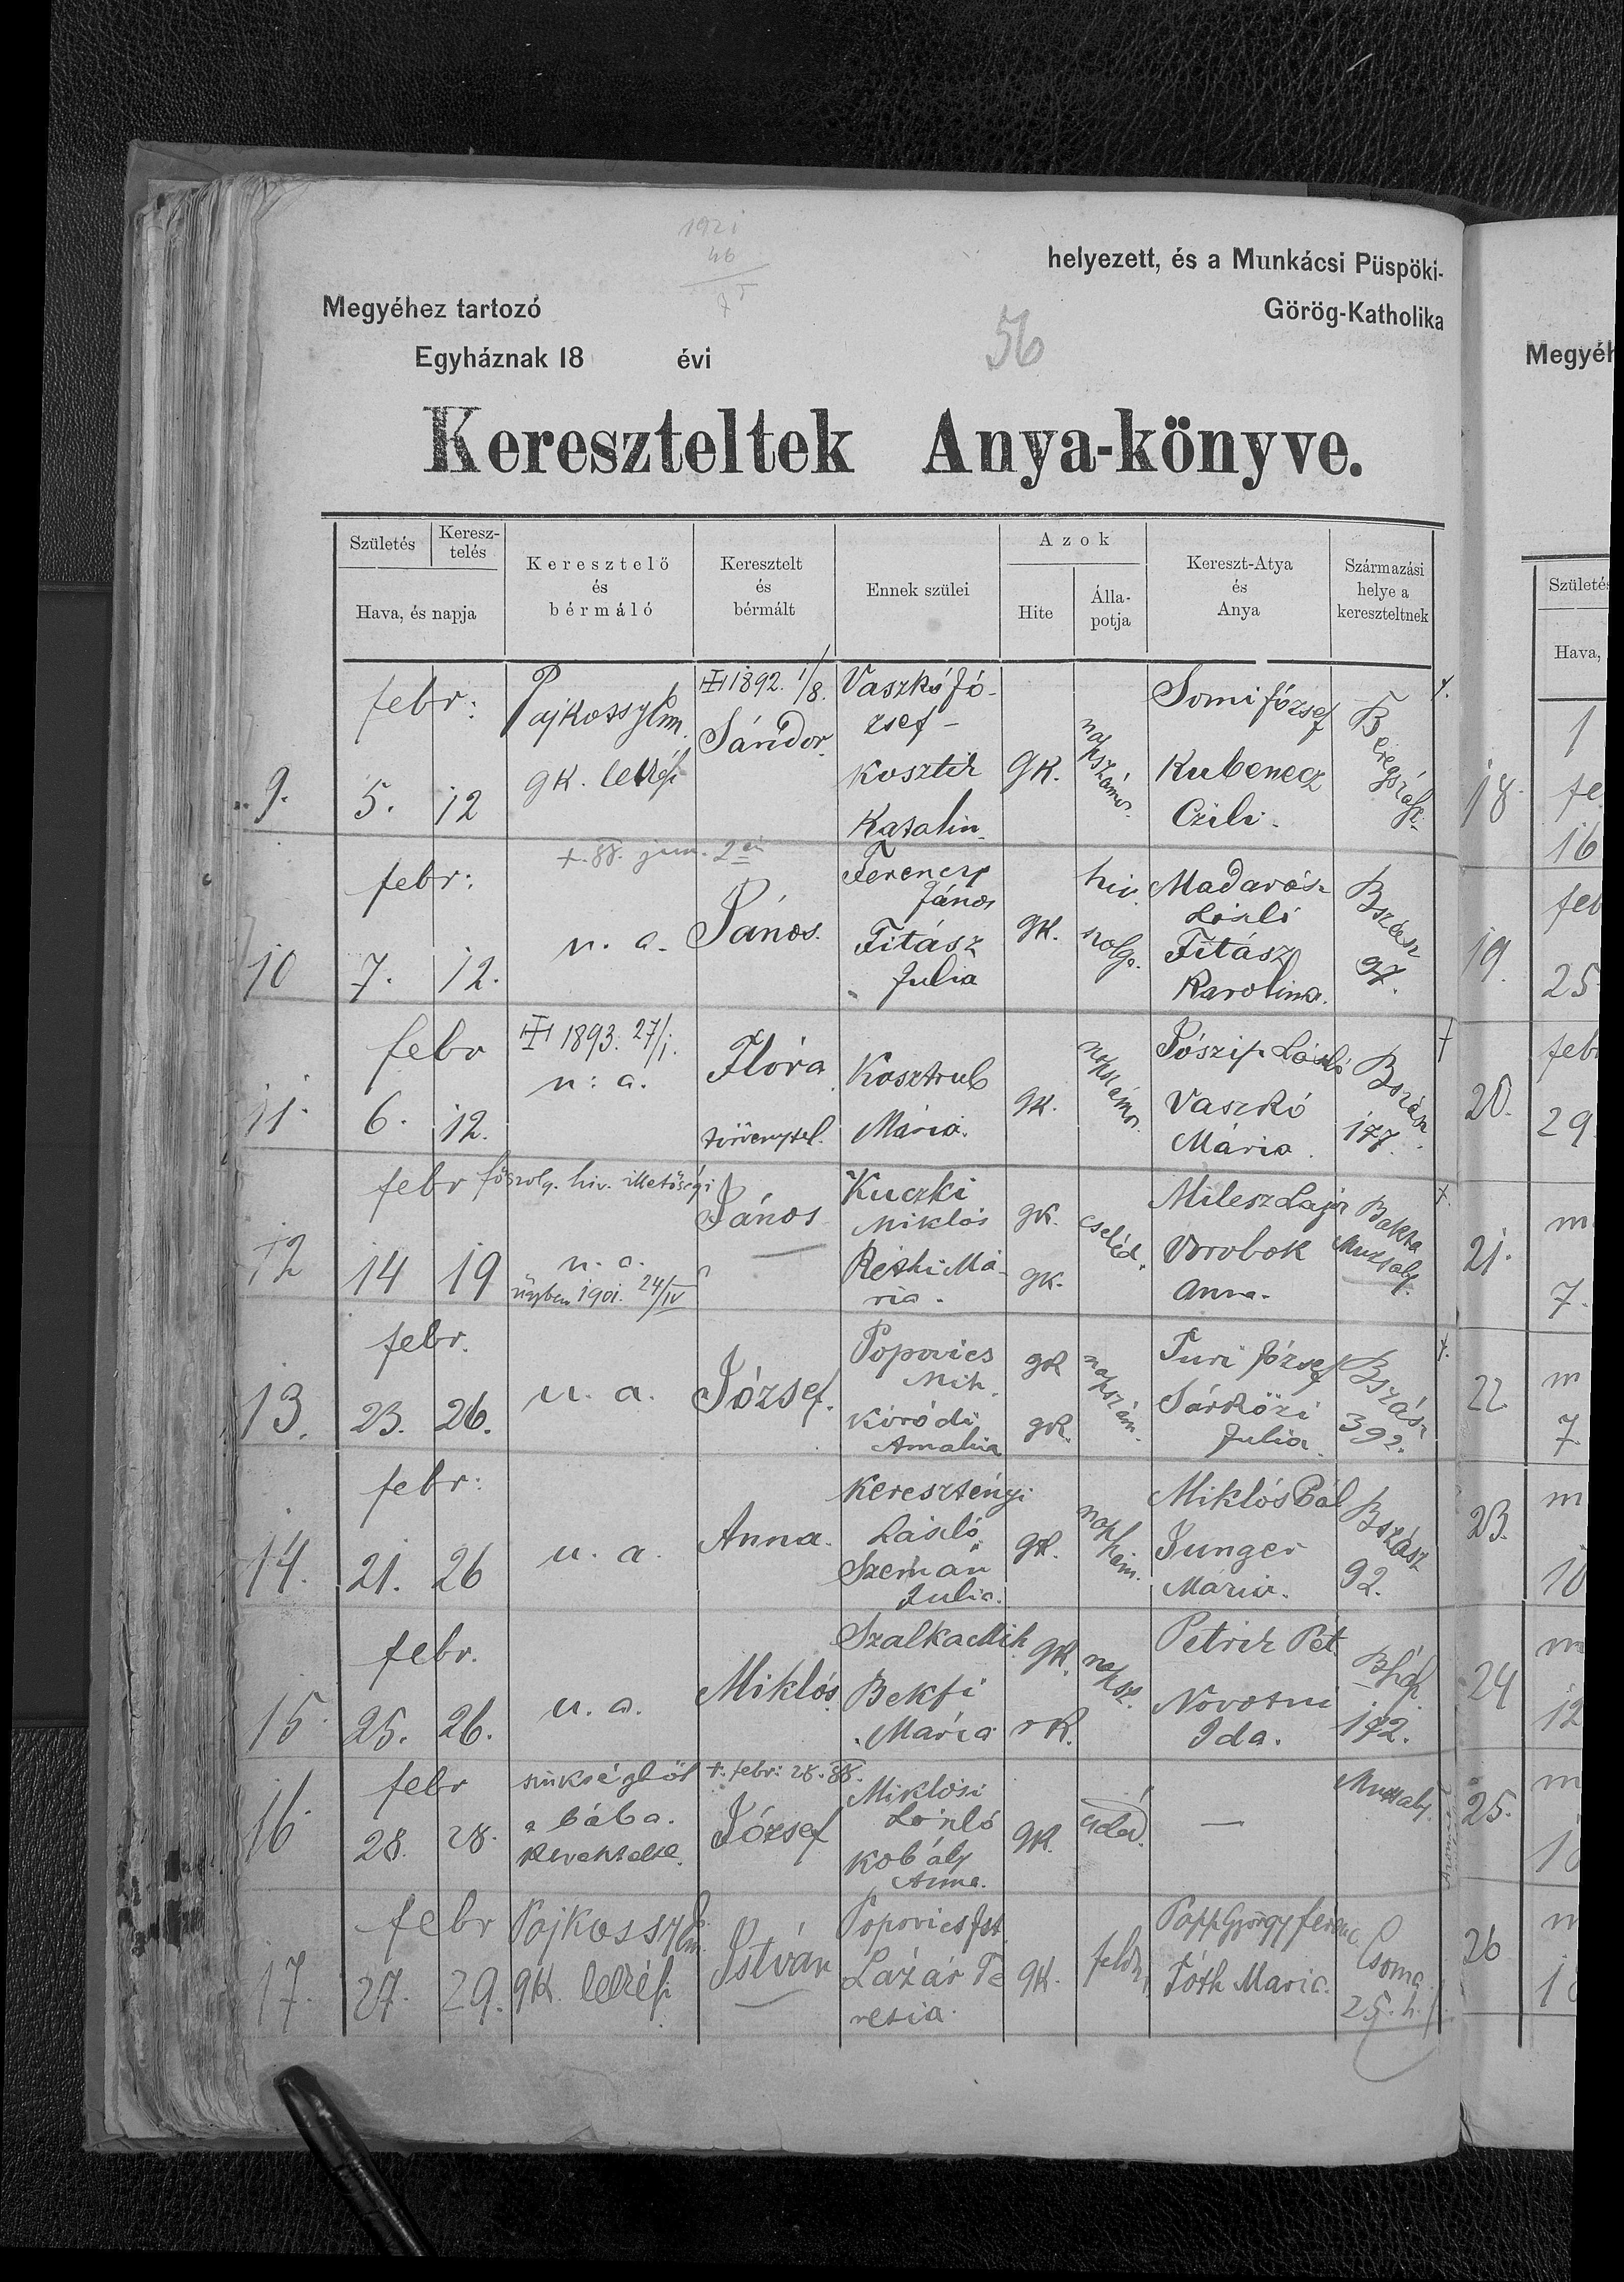 1921
46
helyezett, és a Munkácsi Püspöki-
Megyéhez tartozó
Görög-Katholika
56
Egyháznak 18 évi
Kereszteltek Anya-könyve.
Születés
Keresz-
telés
Hava, és napja
Keresztelő
és
bérmáló
Keresztelt
és
bérmált
Ennek szülei
Azok
Hite
Álla-
potja
Kereszt-Atya
és
Anya
Származási
helye a
kereszteltnek
9.
febr:
5. 12
Pajkossy Em.
gk. lelkész
1892. 1/8.
Sándor.
Vaszkó Jó-
zsef -
Kosztik
Katalin.
gk.
napszámos.
Somi József
Kubenecz
Czili.
Beregszász.
10
febr:
7. 12.
+. 88. jun. 2án
u. a.
János.
Ferenczy
János
Titász
Julia
gk.
hiv.
szolga.
Madarász
László
Titász
Karolina.
Bszász
97.
11.
febr
6. 12.
1893. 27/1.
u: a.
Flóra
törvénytel.
Kosztrub
Mária.
gk.
napszámos.
Jószip László
Vaszkó
Mária.
Bszász
177.
12
febr
14 19
főszolg. hiv. illetőségi
u. a.
ügyben 1901. 24/IV
János
Kuczki
Miklós
Réthi Má-
ria.
gk.
gk.
cseléd.
Milesz Lajos
Vorobok
Anna.
Bakta
Muzsaly.
13.
febr.
23. 26.
u. a.
József.
Popovics
Mih.
Kóródi
Amalia
gk
gk.
napszám.
Turi József
Sárközi
Julia.
Bszász
392.
14.
febr:
21. 26
u. a.
Anna.
Keresztényi
László
Szemán
Julia.
gk.
Miklós Pál
Junger
Mária.
Bszász
92.
15.
febr.
25. 26.
u. a.
Miklós
Szalka Mih.
Bekfi
Mária
gk.
rk.
napsz.
Petrik Pét.
Novotni
Ida.
172.
16.
febr
28. 28.
szükségből
a bába.
+. febr: 28. 88.
József
Miklósi
László
Kobály
Anna.
gk.
—
Muzsaly.
17.
febr
27. 29.
Pajkossy Em.
gk. lelkész
István
Popovics Ist.
Lázár Te
resia.
gk.
földm.
Papp György ferenc
Tóth Maria.
Csoma
25. h.
Megyéh
Születés
Hava,
18.
1
fe
16
19.
feb
25
20.
febr
29
21.
m
7.
22
m
7
23.
m
10
24
m
12
25.
m
26
m